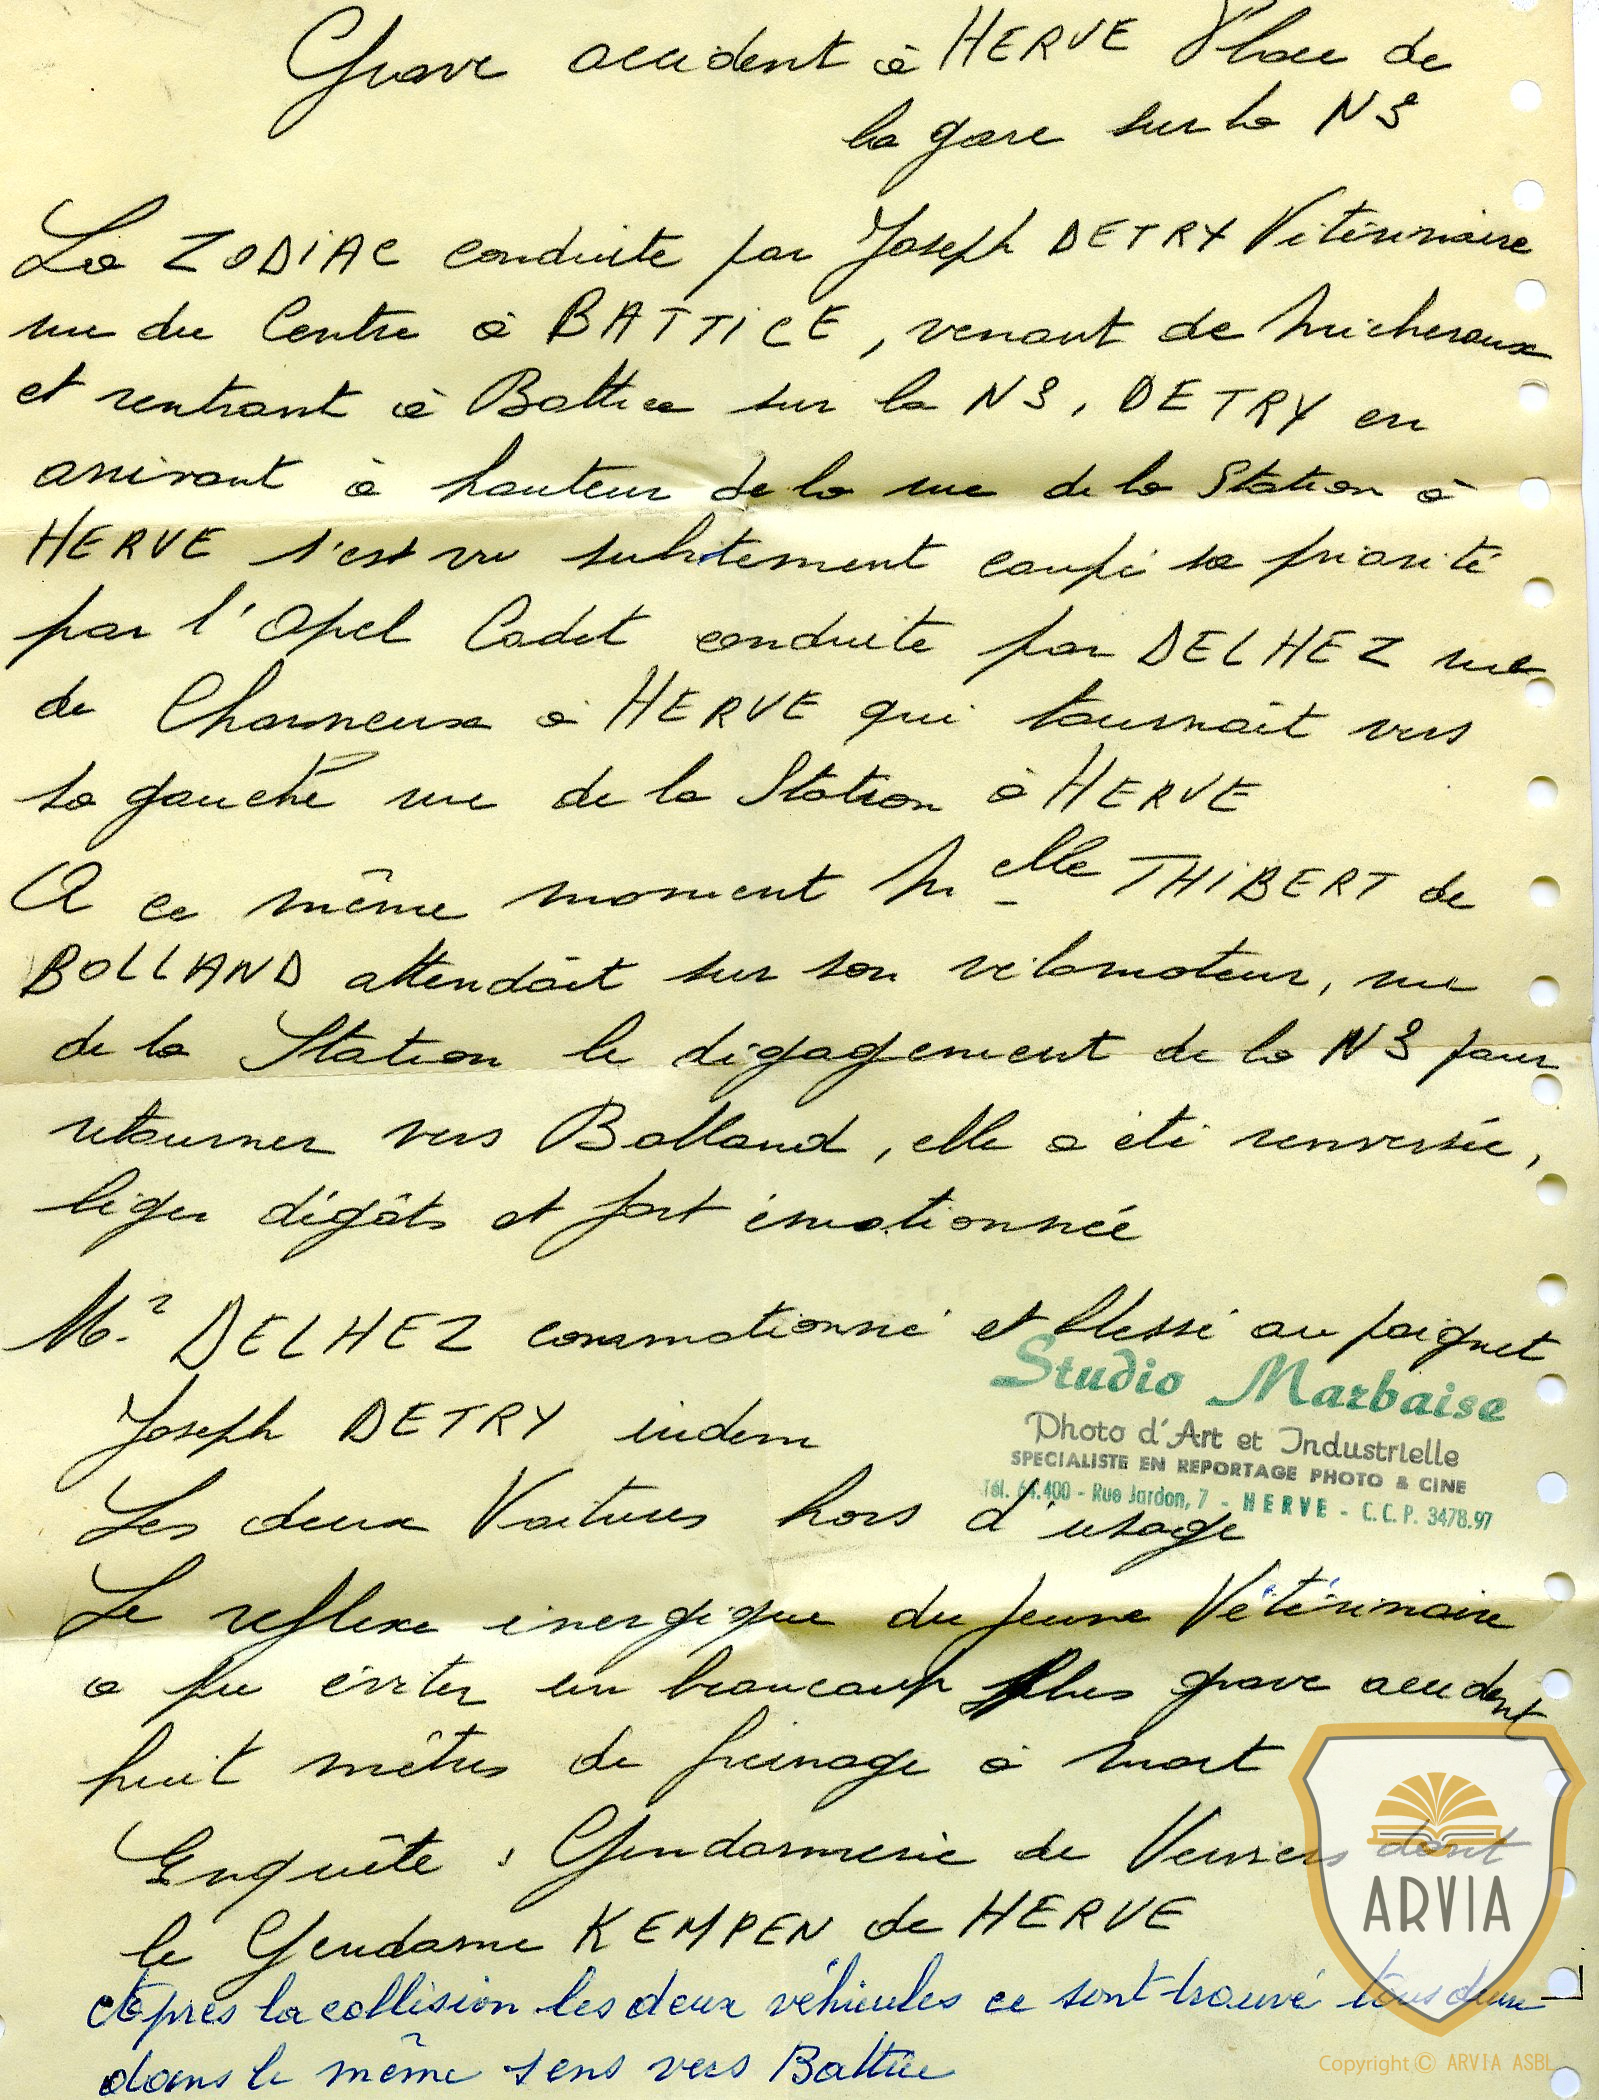 Grave accident à HERVE Place de
la gare sur la N3
La ZODIAC conduite par Joseph DETRY Vétérinaire
rue du Centre à BATTICE, venant de Micheroux
et rentrant à Battice sur la N3, DETRY en
arrivant à hauteur de la rue de la Station à
HERVE s'est vu subitement coupé sa priorité
par l'Opel Cadet conduite par DELHEZ rue
de Charneux à HERVE qui tournait vers
sa gauche rue de la Station à HERVE
A ce même moment Melle THIBERT de
BOLLAND attendait sur son vélomoteur, rue
de la Station le dégagement de la N3 pour
retourner vers Bolland, elle a été renversée,
léger dégâts et fort émotionnée
Mr DELHEZ commotionné et blessé au poignet
Joseph DETRY indem
Studio Marbaise
Photo d'Art et Industrielle
SPECIALISTE EN REPORTAGE PHOTO & CINE
Tél. 64.400 - Rue Jardon, 7 - HERVE - C.C.P. 3478.97
Les deux Voitures hors d'usage
Le reflexe énergique du jeune Vétérinaire
a pu éviter un beaucoup plus grave accident
huit mètres de freinage à mort
Enquête : Gendarmerie de Verviers dont
le Gendarme KEMPEN de HERVE
après la collision les deux véhicules ce sont trouvé tous deux
dans le même sens vers Battice
ARVIA
Copyright © ARVIA ASBL